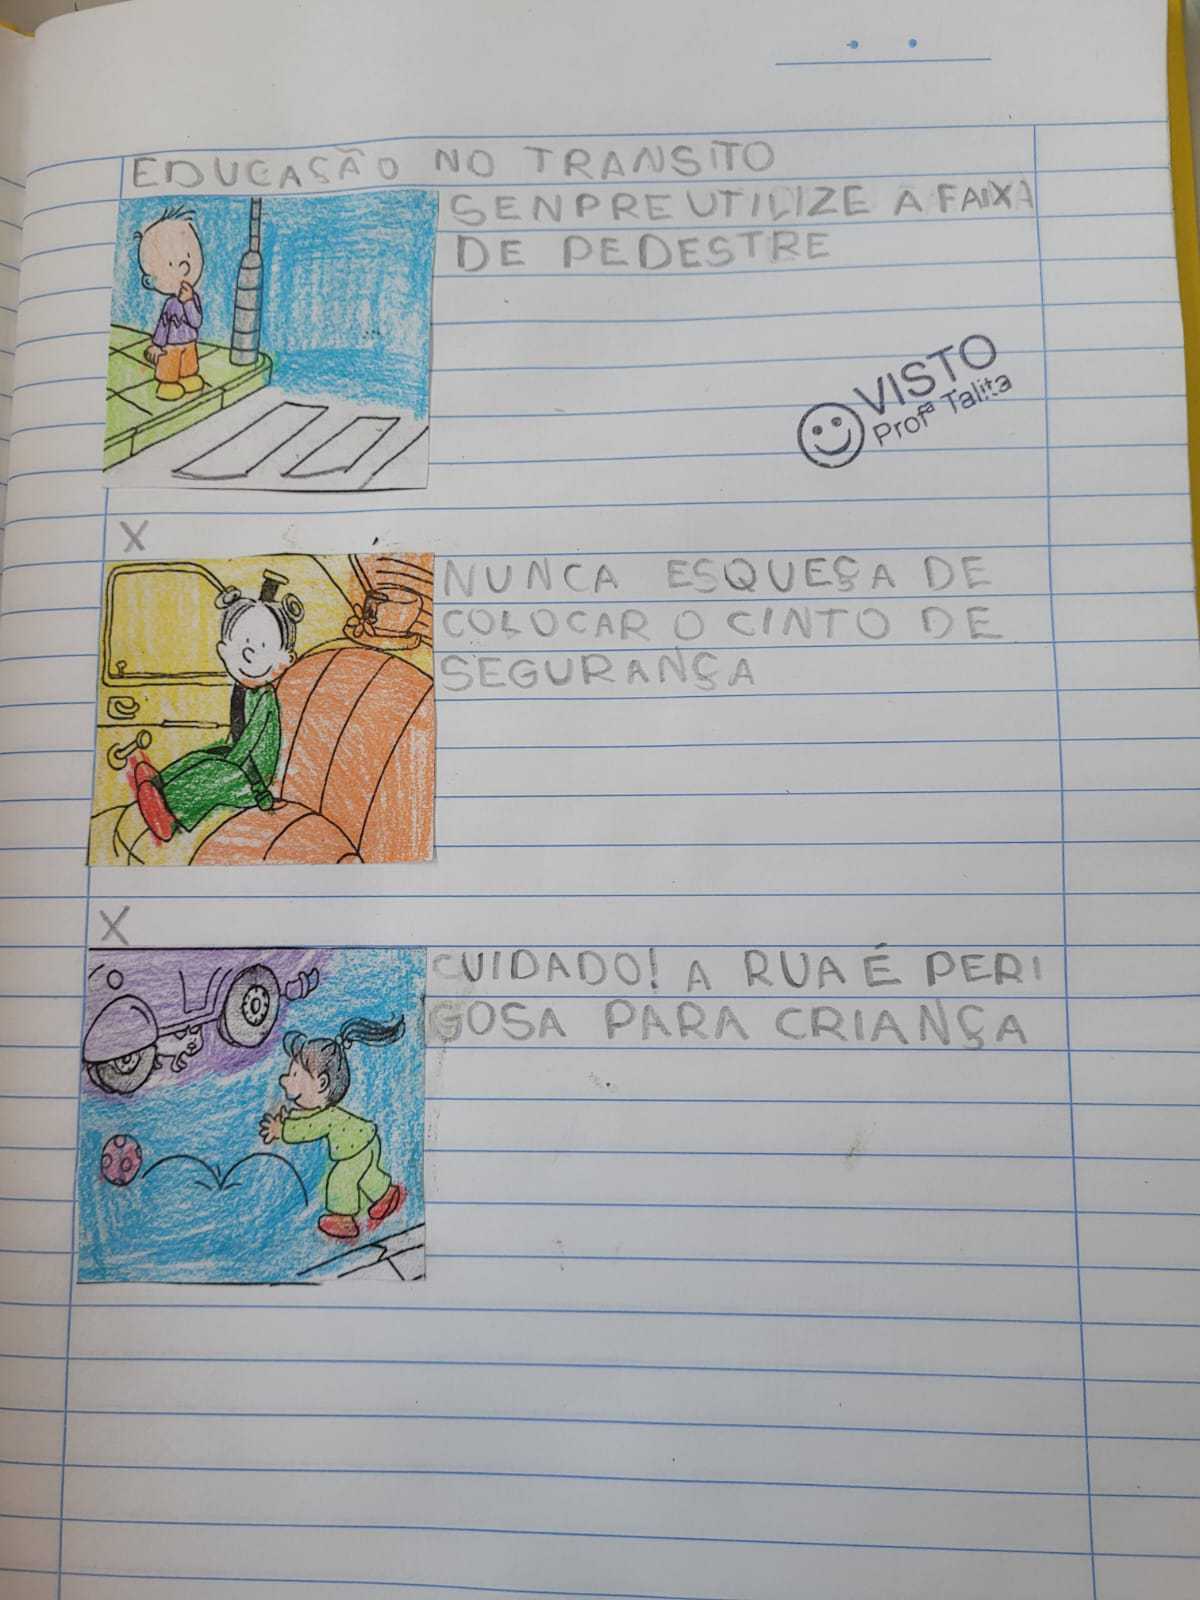 EDUCAÇÃO NO TRANSITO
SENPRE UTILIZE A FAIXA
DE PEDESTRE
VISTO
Profª Talita
X
NUNCA ESQUEÇA DE
COLOCAR O CINTO DE
SEGURANÇA
X
CUIDADO! A RUA É PERI
GOSA PARA CRIANÇA